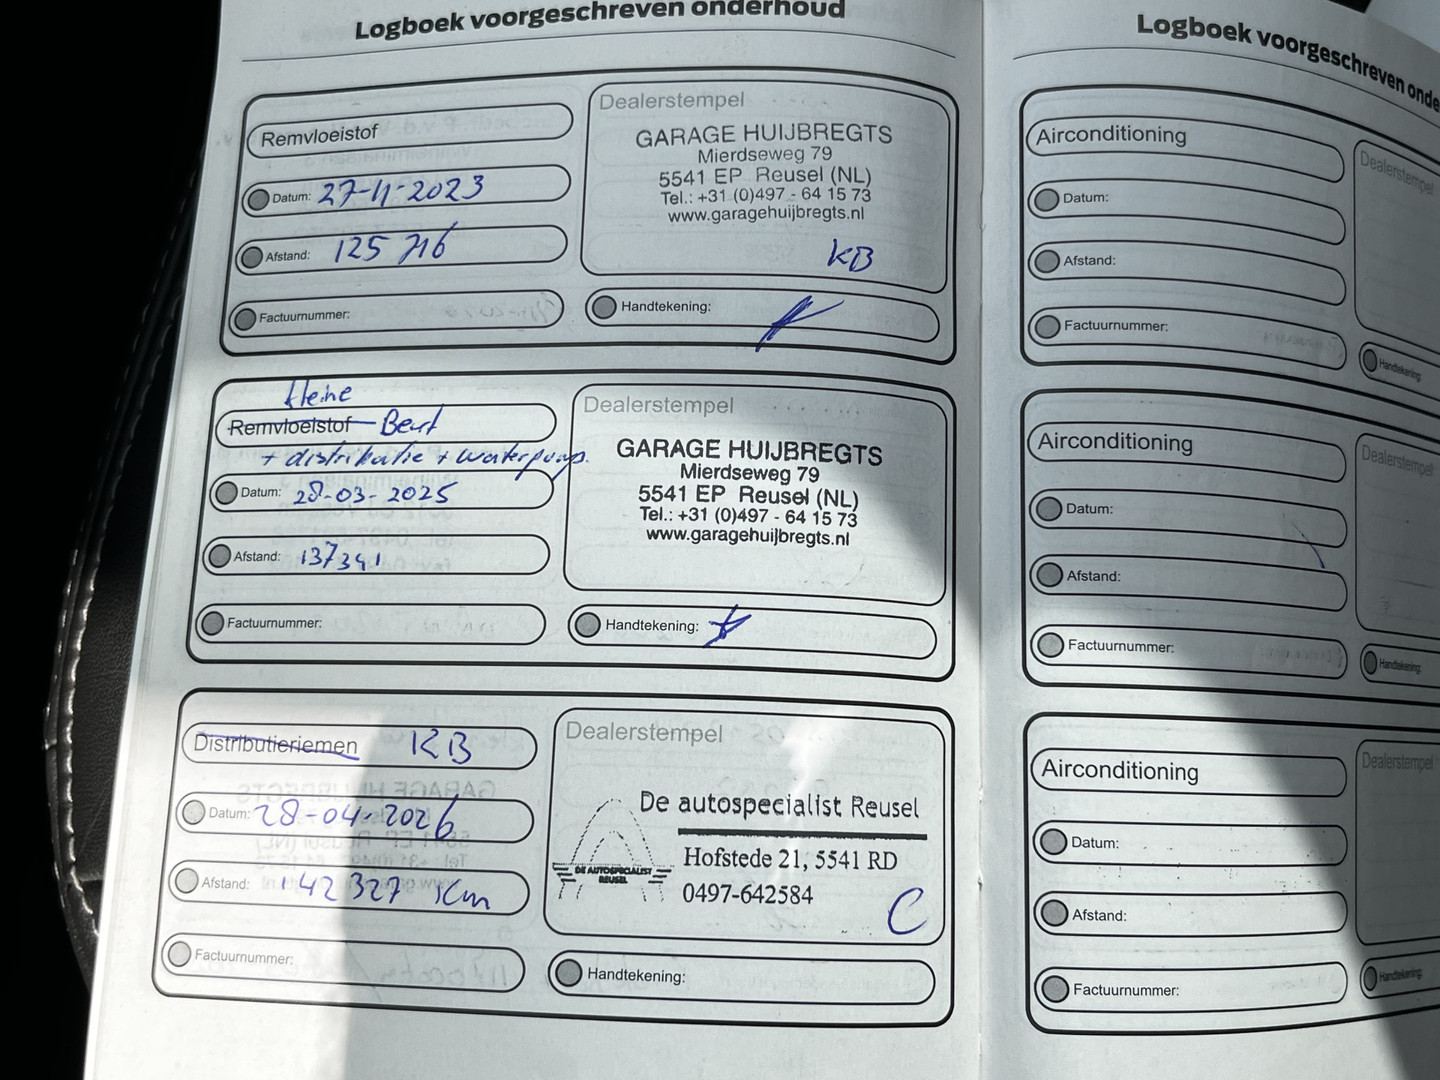 Logboek voorgeschreven onderhoud
Remvloeistof
Datum: 27-11-2023
Afstand: 125 716
Factuurnummer:
Dealerstempel
GARAGE HUIJBREGTS
Mierdseweg 79
5541 EP Reusel (NL)
Tel.: +31 (0)497 - 64 15 73
www.garagehuijbregts.nl
KB
Handtekening:
kleine
Remvloeistof Beurt
+ distributie + waterpomp.
Datum: 28-03-2025
Afstand: 137391
Factuurnummer:
Dealerstempel
GARAGE HUIJBREGTS
Mierdseweg 79
5541 EP Reusel (NL)
Tel.: +31 (0)497 - 64 15 73
www.garagehuijbregts.nl
Handtekening:
Distributieriemen KB
Datum: 28-04-2026
Afstand: 142 327 Km
Factuurnummer:
Dealerstempel
De autospecialist Reusel
Hofstede 21, 5541 RD
0497-642584
DE AUTOSPECIALIST
REUSEL
C
Handtekening:
Logboek voorgeschreven onde
Airconditioning
Datum:
Afstand:
Factuurnummer:
Dealerstempel
Handtekening:
Airconditioning
Datum:
Afstand:
Factuurnummer:
Dealerstempel
Handtekening:
Airconditioning
Datum:
Afstand:
Factuurnummer:
Dealerstempel
Handtekening: